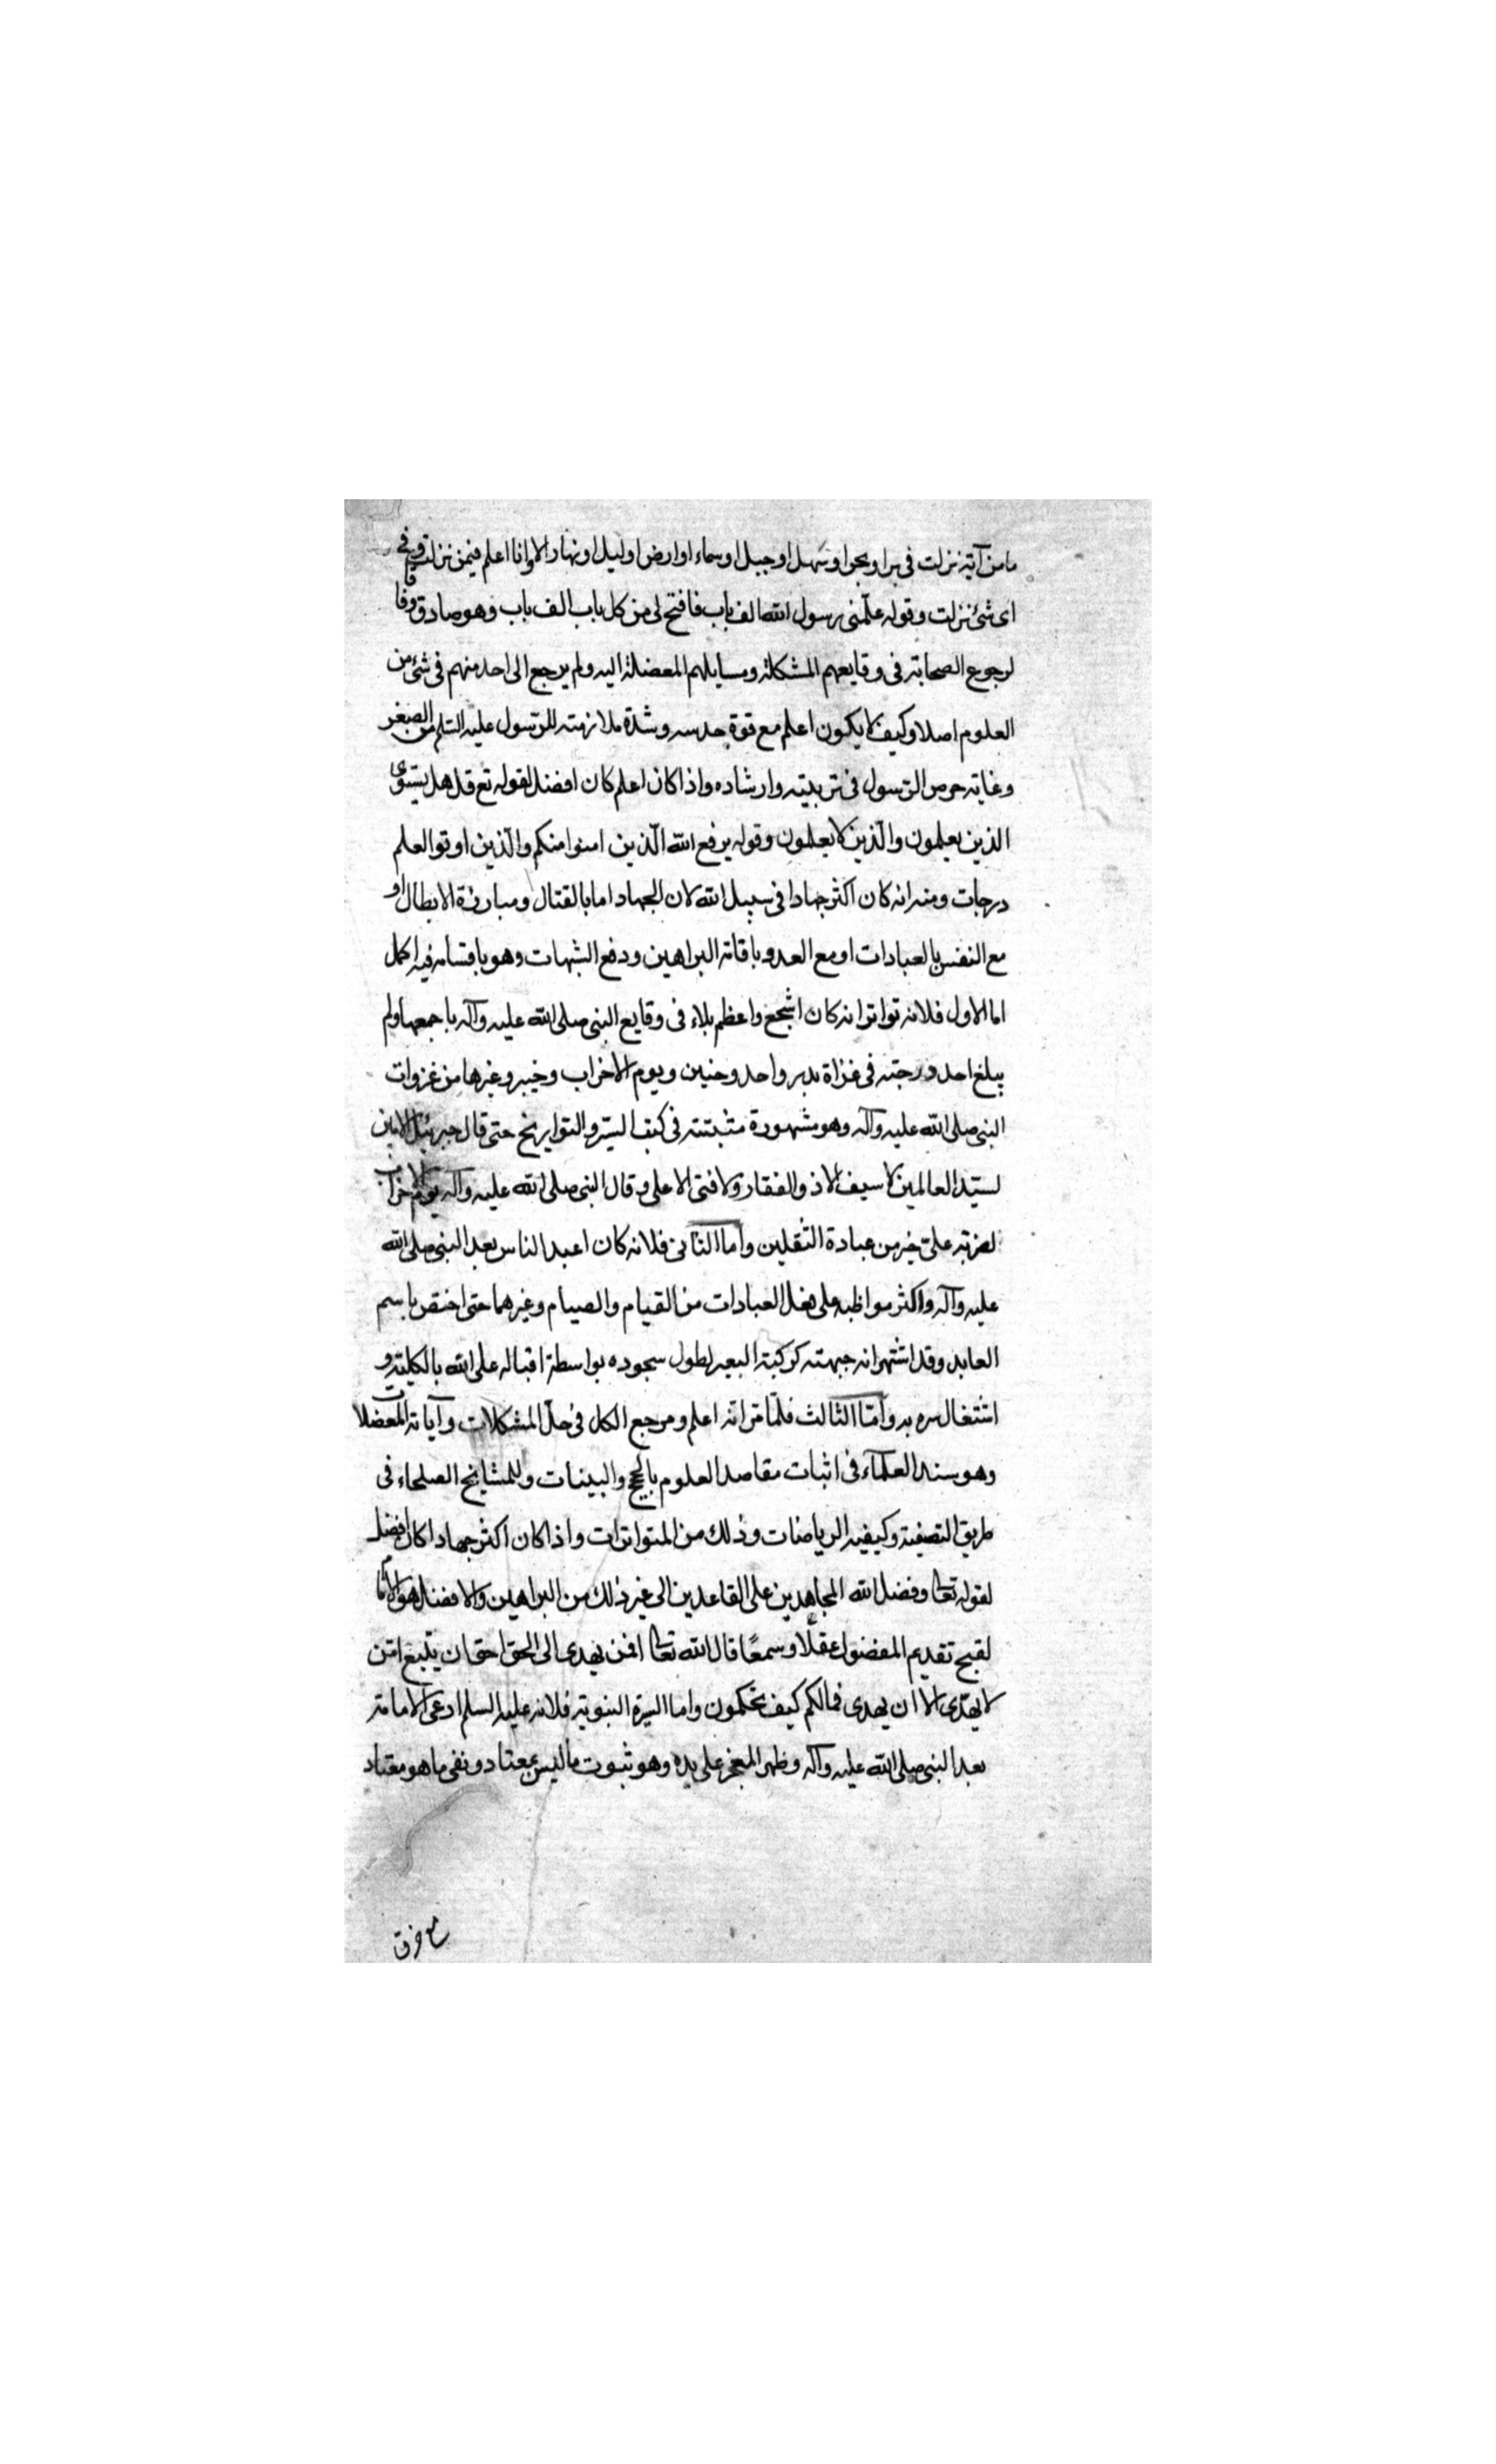 ما من آية نزلت فى بر او بحر او سهل او جبل او سماء او ارض او ليل او نهار الا وانا اعلم فيمن نزلت وفى
اى شئ نزلت وقوله علّمنى رسول الله الف باب فافتح لى من كل باب الف باب وهو صادق
لرجوع الصحابة فى وقايعهم المشكلة ومسايلهم المعضلة اليه ولم يرجع الى احد منهم فى شئ من
العلوم اصلا وكيف لا يكون اعلم مع قوة حدسه وشدة ملازمته للرّسول عليه السّلم من الصغر
وغاية حرص الرّسول فى تربيته وارشاده واذا كان اعلم كان افضل لقوله تع قل هل يستوى
الذين يعلمون والّذين لا يعلمون وقوله يرفع الله الّذين امنوا منكم والّذين اوتوا العلم
درجات ومنه انه كان اكثر جهادا فى سبيل الله لان الجهاد اما بالقتال ومبارزة الابطال او
مع النفس بالعبادات او مع العدو باقامة البراهين ودفع الشبهات وهو باقسامه فيه اكمل
اما الاول فلانه تواتر انه كان اشجع واعظم بلاء فى وقايع النبى صلى الله عليه وآله باجمعها ولم
يبلغ احد درجته فى غزاة بدر واحد وحنين ويوم الاحزاب وخيبر وغيرها من غزوات
النبى صلى الله عليه وآله وهو مشهورة مثبتة فى كتب السير والتواريخ حتى قال جبرئيل الامين
لسيّد العالمين لا سيف الا ذو الفقار ولا فتى الا على وقال النبى صلى الله عليه وآله يوم الاحزاب
لضربة علىّ خير من عبادة الثقلين واما الثانى فلانه كان اعبد الناس بعد النبى صلى الله
عليه وآله واكثر مواظبة على فعل العبادات من القيام والصيام وغيرهما حتى اختص باسم
العابد وقد اشتهر انه جبهته كركبة البعير لطول سجوده بواسطة اقباله على الله بالكلية و
اشتغال سره به وامّا الثالث فلمّا مرّ انه اعلم ومرجع الكل فى حلّ المشكلات وآياته المعضلات
وهو سند العلمآء فى اثبات مقاصد العلوم بالحجج والبينات وللمشايخ الصلحاء فى
طريق التصفية وكيفيه الرياضات وذلك من المتواترات واذا كان اكثر جهادا كان افضل
لقوله تعالى وفضل الله المجاهدين على القاعدين الى غير ذلك من البراهين والافضل هو الامام
لقبح تقديم المفضول عقلًا وسمعًا قال الله تعالى افمن يهدى الى الحق احق ان يتّبع امّن
لا يهدّى الا ان يهدى فمالكم كيف تحكمون واما السيرة النبوية فلانه عليه السلم ادعى الامامة
بعد النبى صلى الله عليه وآله وظهر المعجز على يده وهو ثبوت ما ليس بمعتاد و نفى ما هو معتاد
مع خرق